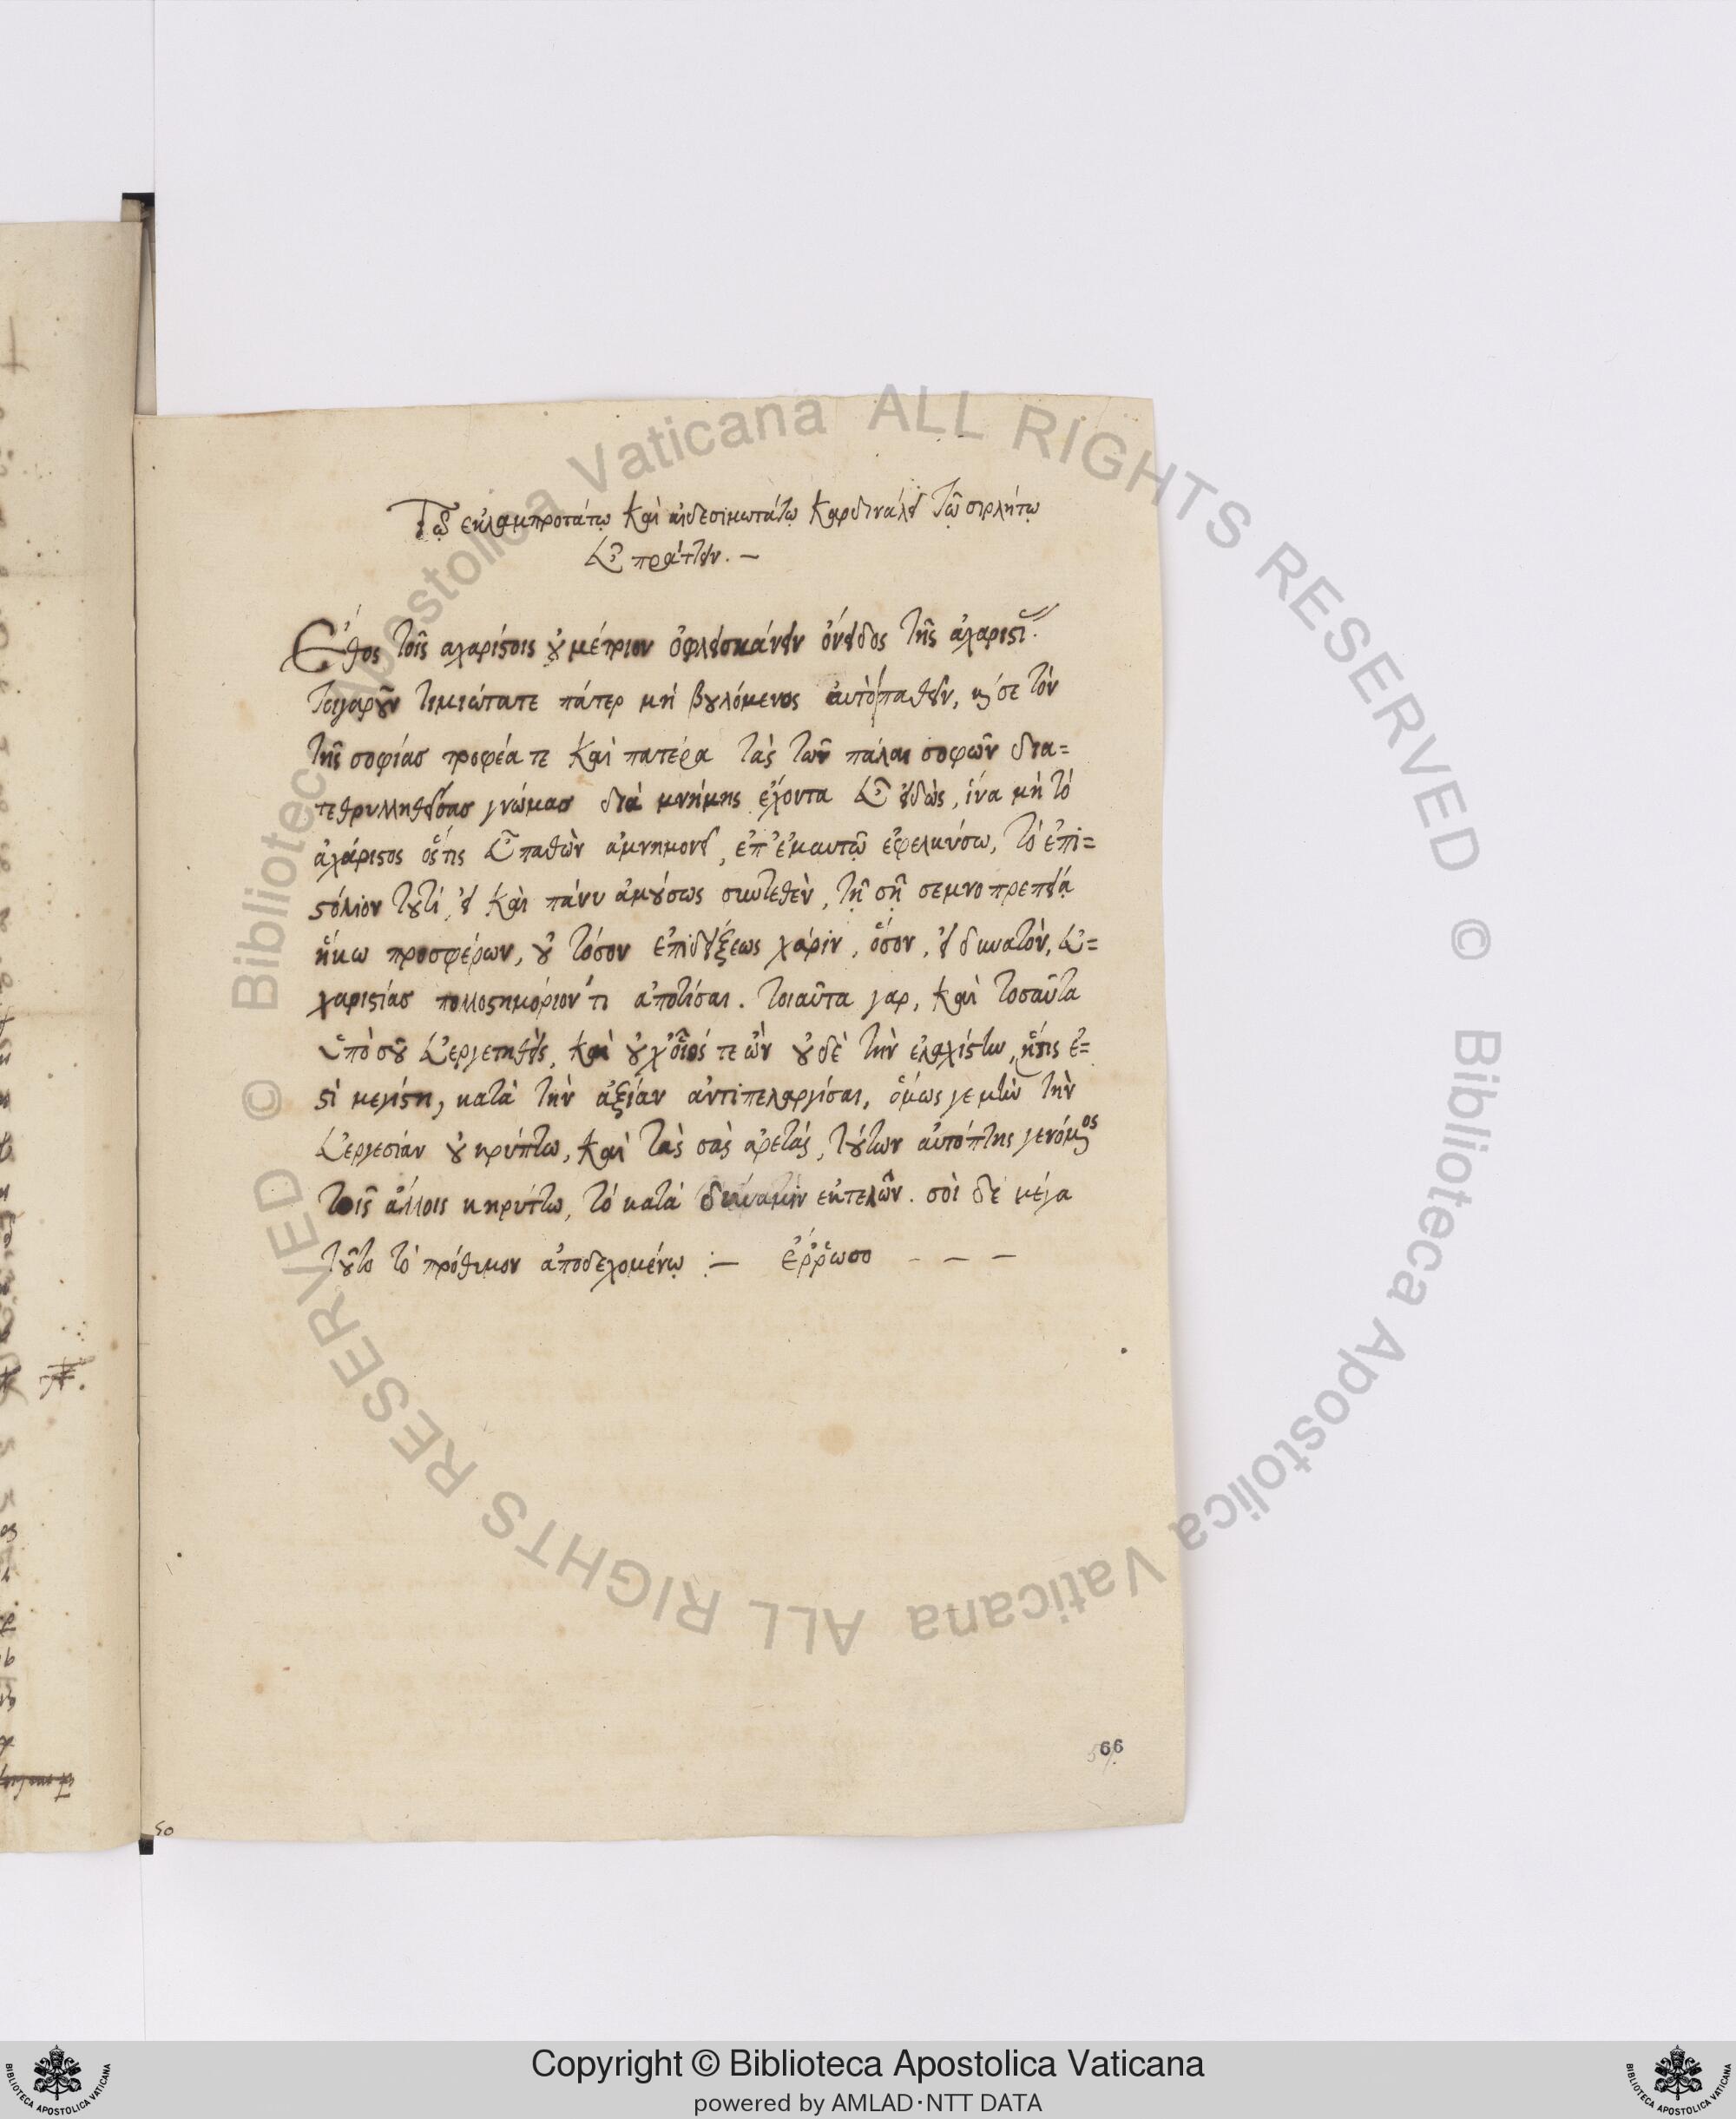 Τῷ ἐκλαμπροτάτῳ καὶ αἰδεσιμωτάτῳ καρδινάλει τῷ σιρλήτῳ
εὖ πράττειν. —
Ἔθος τοῖς ἀχαρίστοις οὐ μέτριον ὀφλεισκάνειν ὄνειδος τῆς ἀχαριστί
τοιγαροῦν τιμιώτατε πάτερ μὴ βουλόμενος αὐτὸ παθεῖν, καί σε τὸν
τῆς σοφίας τροφέα τε καὶ πατέρα τὰς τῶν πάλαι σοφῶν δια=
τεθρυλληθείσας γνώμας διὰ μνήμης ἔχοντα εὖ εἰδὼς, ἵνα μὴ τὸ
ἀχάριστος ὅστις εὖ παθὼν ἀμνημονεῖ, ἐπ' ἐμαυτῷ ἐφελκύσω, τὸ ἐπι=
στόλιον τουτί, εἰ καὶ πάνυ ἀμούσως συντεθὲν, τῇ σῇ σεμνοπρεπείᾳ
ἥκω προσφέρων, οὐ τόσον ἐπιδείξεως χάριν, ὅσον, εἰ δυνατὸν, εὐ=
χαριστίας πολλοστημόριόν τι ἀποτίσαι. τοιαῦτα γαρ, καὶ τοσαῦτα
ὑπὸ σοῦ εὐεργετηθεὶς, καὶ οὐχ οἷός τε ὢν οὐδὲ τὴν ἐλαχίστην, ἥτις ἐ=
στὶ μεγίστη, κατὰ τὴν ἀξίαν ἀντιπελαργίσαι, ὅμως γε μὴν τὴν
εὐεργεσίαν οὐ κρύπτω, καὶ τὰς σὰς ἀρετάς, τούτων αὐτόπτης γενόμενος
τοῖς ἄλλοις κηρύττω, τὸ κατὰ δύναμιν ἐκτελῶν. σοὶ δὲ μέγα
τοῦτο τὸ πρόθυμον ἀποδεχομένῳ :— ἔρρωσο — — —
66
50
Copyright © Biblioteca Apostolica Vaticana
powered by AMLAD·NTT DATA